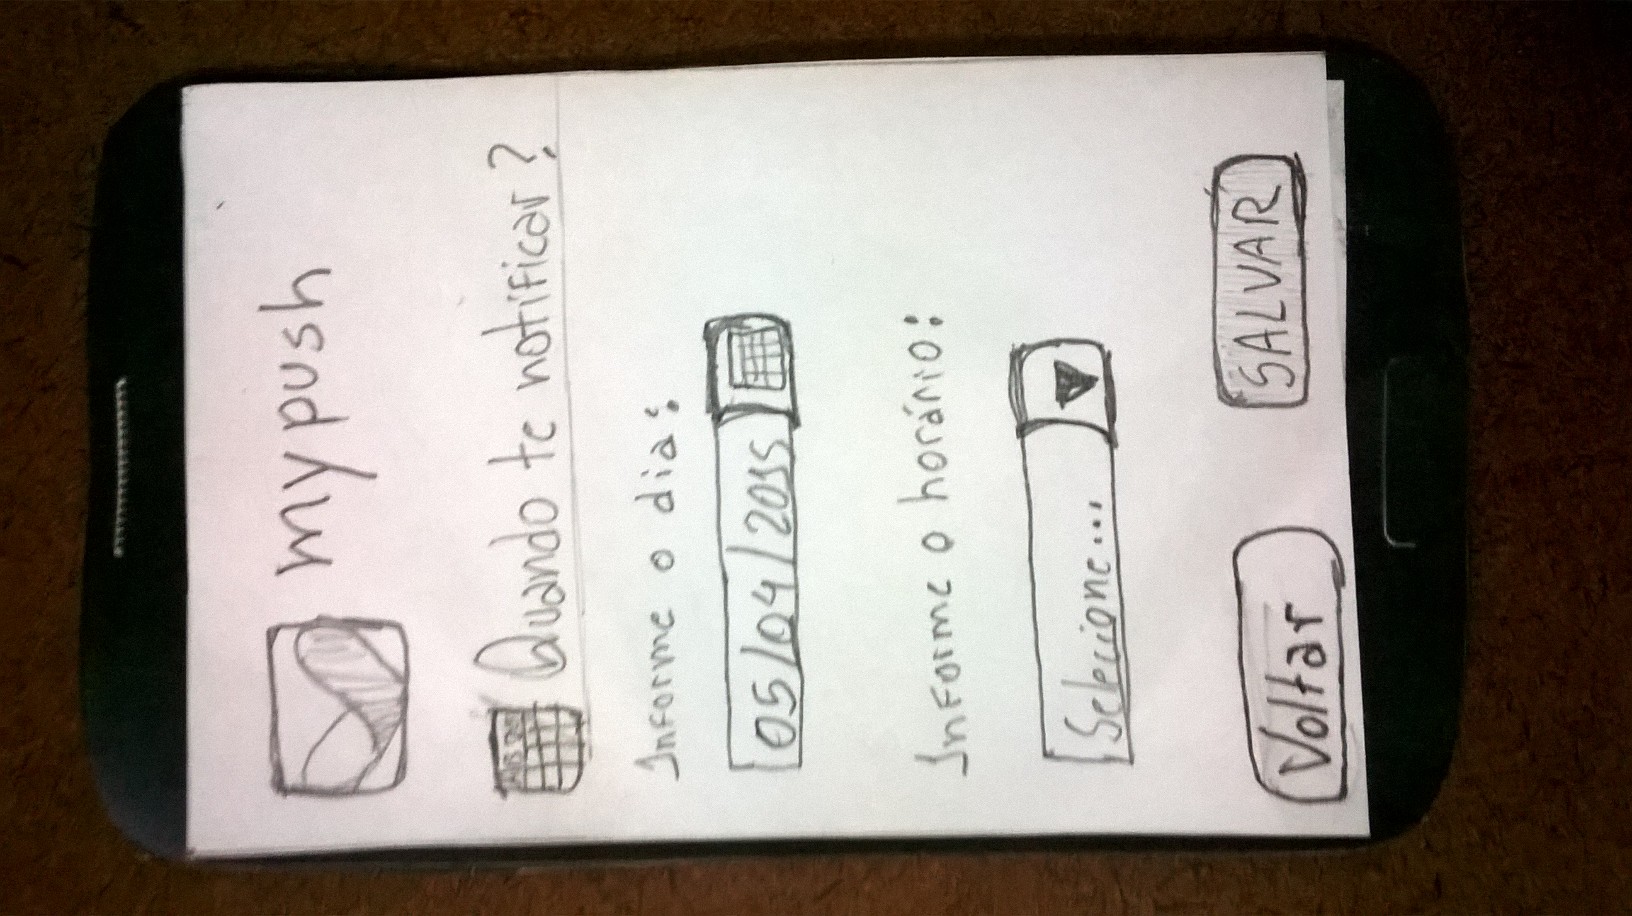 my push
Quando te notificar?
Informe o dia:
05/04/2015
Informe o horário:
Selecione...
Voltar
SALVAR